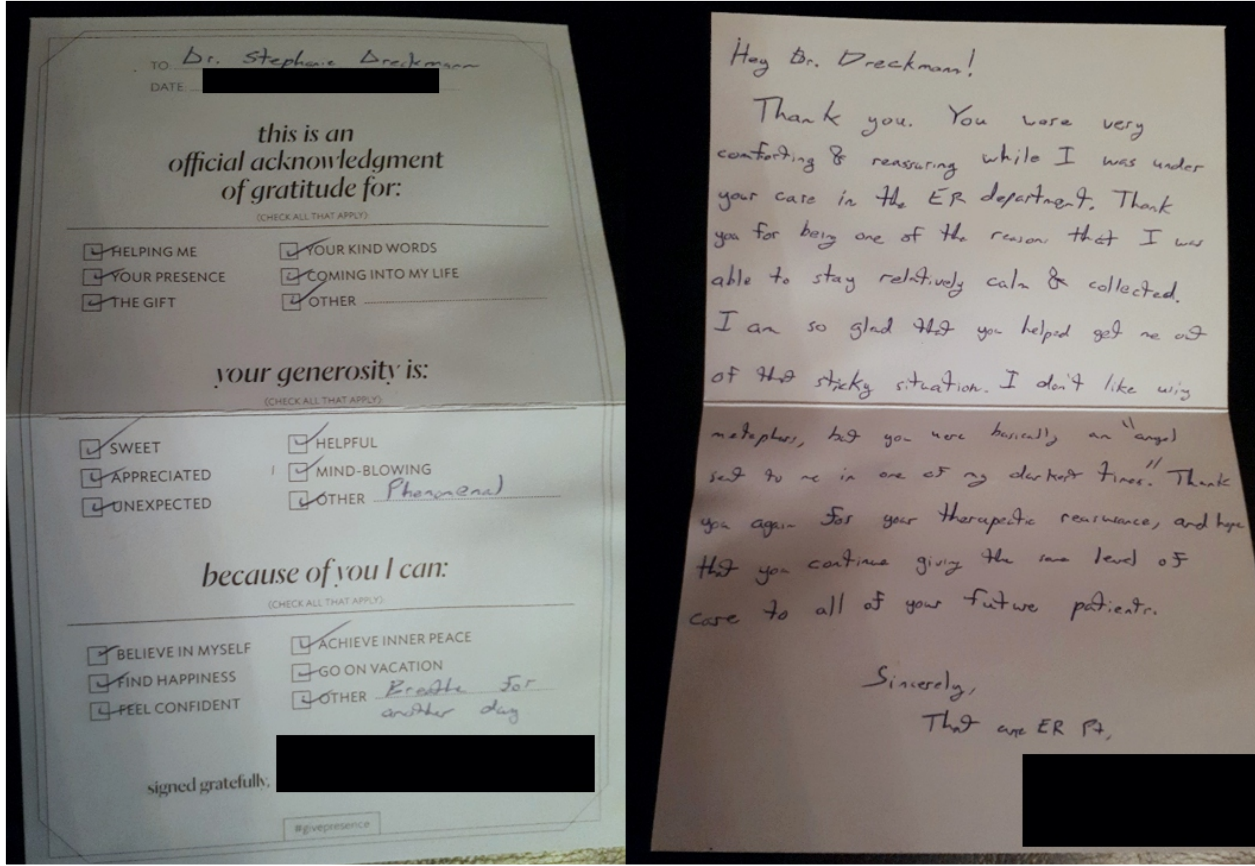 TO: Dr. Stephanie Dreckmann
DATE:
this is an
official acknowledgment
of gratitude for:
(CHECK ALL THAT APPLY)
HELPING ME
YOUR PRESENCE
THE GIFT
YOUR KIND WORDS
COMING INTO MY LIFE
OTHER
your generosity is:
(CHECK ALL THAT APPLY)
SWEET
APPRECIATED
UNEXPECTED
HELPFUL
MIND-BLOWING
OTHER Phenomenal
because of you I can:
(CHECK ALL THAT APPLY)
BELIEVE IN MYSELF
FIND HAPPINESS
FEEL CONFIDENT
ACHIEVE INNER PEACE
GO ON VACATION
OTHER Breathe for
another day
signed gratefully,
#givepresence
Hey Dr. Dreckmann!
Thank you. You were very
comforting & reassuring while I was under
your care in the ER department. Thank
you for being one of the reasons that I was
able to stay relatively calm & collected.
I am so glad that you helped get me out
of that sticky situation. I don't like using
metaphors, but you were basically an "angel
sent to me in one of my darkest times." Thank
you again for your therapeutic reassurance, and hope
that you continue giving the same level of
care to all of your future patients.
Sincerely,
That one ER Pt,